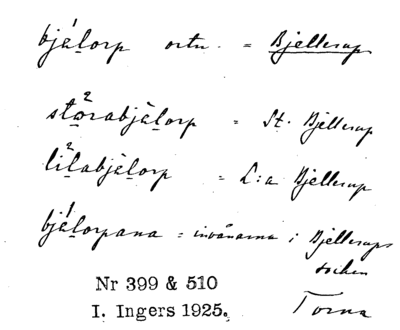 bjálorp ortn. = Bjellerup
störabjàlorp = St. Bjellerup
lilabjàlorp = L:a Bjellerup
bjálorpana = invånarna i Bjellerups
socken
Nr 399 & 510
I. Ingers 1925.
Torna